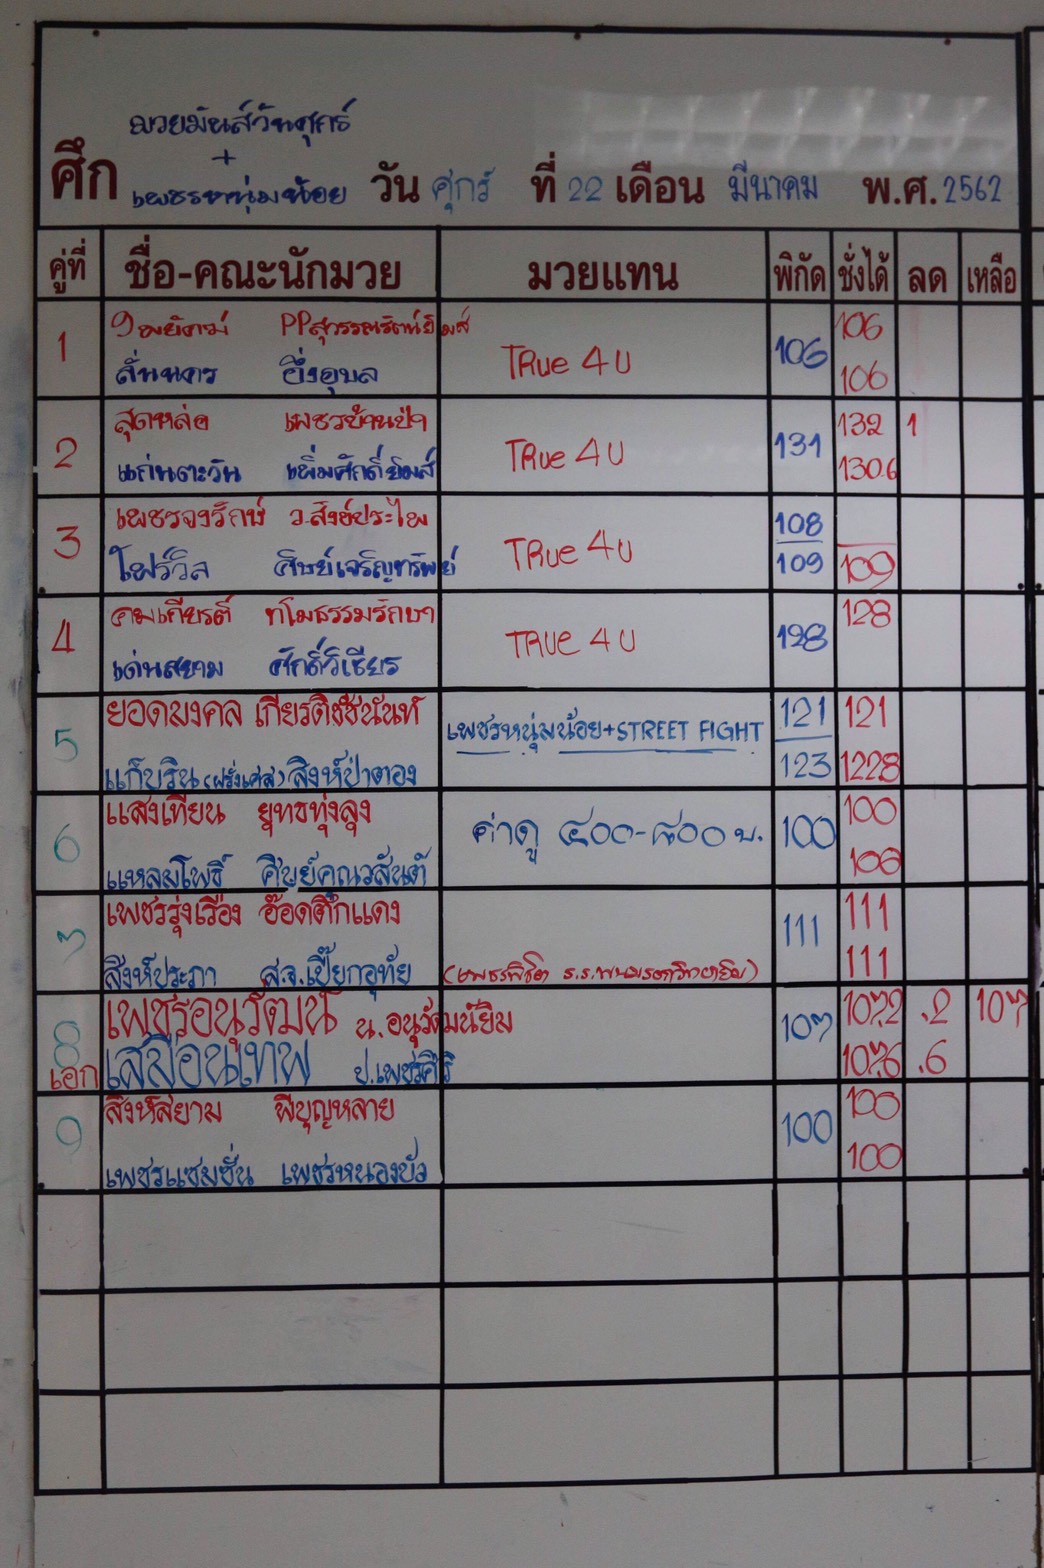 มวยมันส์วันศุกร์
+
ศึก เพชรหนุ่มน้อย วัน ศุกร์ ที่ 22 เดือน มีนาคม พ.ศ. 2562
คู่ที่ ชื่อ-คณะนักมวย มวยแทน พิกัด ชั่งได้ ลด เหลือ
PPสุวรรณรัตน์ยิมส์ 106
1 True 4U 106
อึ่งอุบล 106
สุดหล่อ เพชรบ้านป่า 132 1
2 True 4U 131
แก่นตะวัน เพิ่มศักดิ์ยิมส์ 130.6
เพชรจงรักษ์ ว.สังข์ประไพ 108
3 True 4U
โฟร์วิล ศิษย์เจริญทรัพย์ 109 109
คมเกียรติ์ ทโมธรรมรักษา 128
4 True 4U 128
เด่นสยาม ศักดิ์วิเชียร
ยอดมงคล เกียรติชัชนันท์ 121 121
5 เพชรหนุ่มน้อย+STREET FIGHT
แก็บริน (ฝรั่งเศส) สิงห์ป่าตอง 123 122.8
แสงเทียน ยุทธทุ่งลุง 100
6 ค่าดู ๔๐๐-๘๐๐ บ. 100
แหลมโพธิ์ ศิษย์คุณวสันต์ 100
เพชรรุ่งเรือง อ๊อดตึกแดง 111
7 111
สิงห์ประภา ส.จ.เปี๊ยกอุทัย 111
เพชรอนุวัฒน์ น.อนุวัฒน์ยิม 107.2 .2 107
8 107
เอก เสลือนเทพ ป.เพชรศิริ 107.6 .6
สิงห์สยาม ผีบุญหลาย 100
9 100
เพชรแชมชั่น เพชรหนองบัว 100